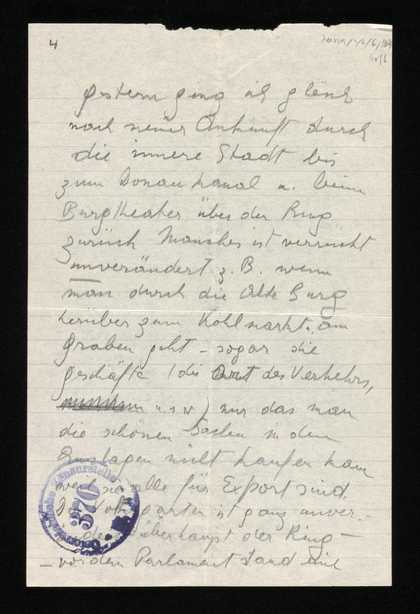 4
gestern ging ich gleich
nach meiner Ankunft durch
die innere Stadt bis
zum Donaukanal u. beim
Burgtheater über der Ring
zurück Manches ist verrückt
unverändert z. B. wenn
man durch die Alte Burg
herüber zum Kohlmarkt, am
Graben geht - sogar die
Geschäfte (die Art des Verkehrs,
u.s.w) nur das man
die schönen Sachen in den
Auslagen nicht kaufen kann
weil sie alle für Export sind.
ist ganz unver-
überhaupt der Ring -
- vor dem Parlament sind
Zensurstelle
570